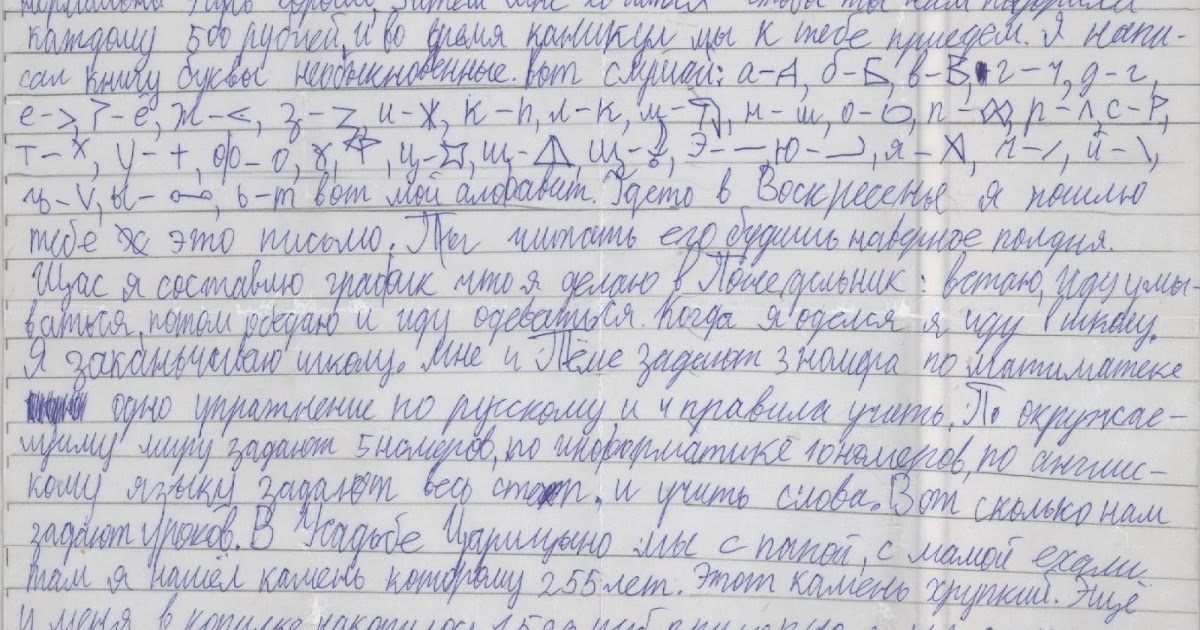 чтобы ты нам подарили
каждому 500 рублей, и во время каникул мы к тебе приедем. Я напи-
сал книгу буквы необыкновенные. вот слушай: а-А, б-Б, в-В, г-ч, д-г,
е->, ё, ж-<, з-Z, и-Ж, к-п, л-к, м-, н-ш, о-, п-, р-л, с-Р,
т-x, у-+, ф-о, х, ц-, ш-, щ-, э-—, ю-, я-, й-\,
ъ-V, ы-, ь-т вот мой алфавит. Гдето в Воскресенье я пошлю
тебе это письмо. Ты читать его будишь наверное полдня.
Щас я составлю график что я делаю в Понедельник: встаю, иду умы-
ваться, потом и иду одеваться. Когда я оделся я иду в школу.
Я заканьчиваю школу. мне и Тёме задают 3 номера по матиматеке
одно упражнение по русскому и 4 правила учить. По окружаю-
щиму миру задают 5 номеров, по информатике 10 номеров, по англис-
кому языку задают весь и учить слова. Вот сколько нам
задают уроков. В Усадьбе Царицыно мы с папой, с мамой ехали
там я нашёл камень которому 255 лет. Этот камень хрупкий. Ещё
у меня в копилке накопилось